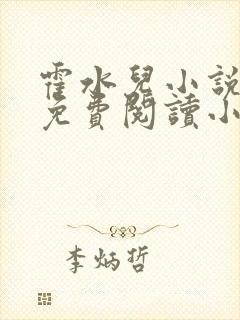 霍水兒小說
免費閱讀小
李炳哲